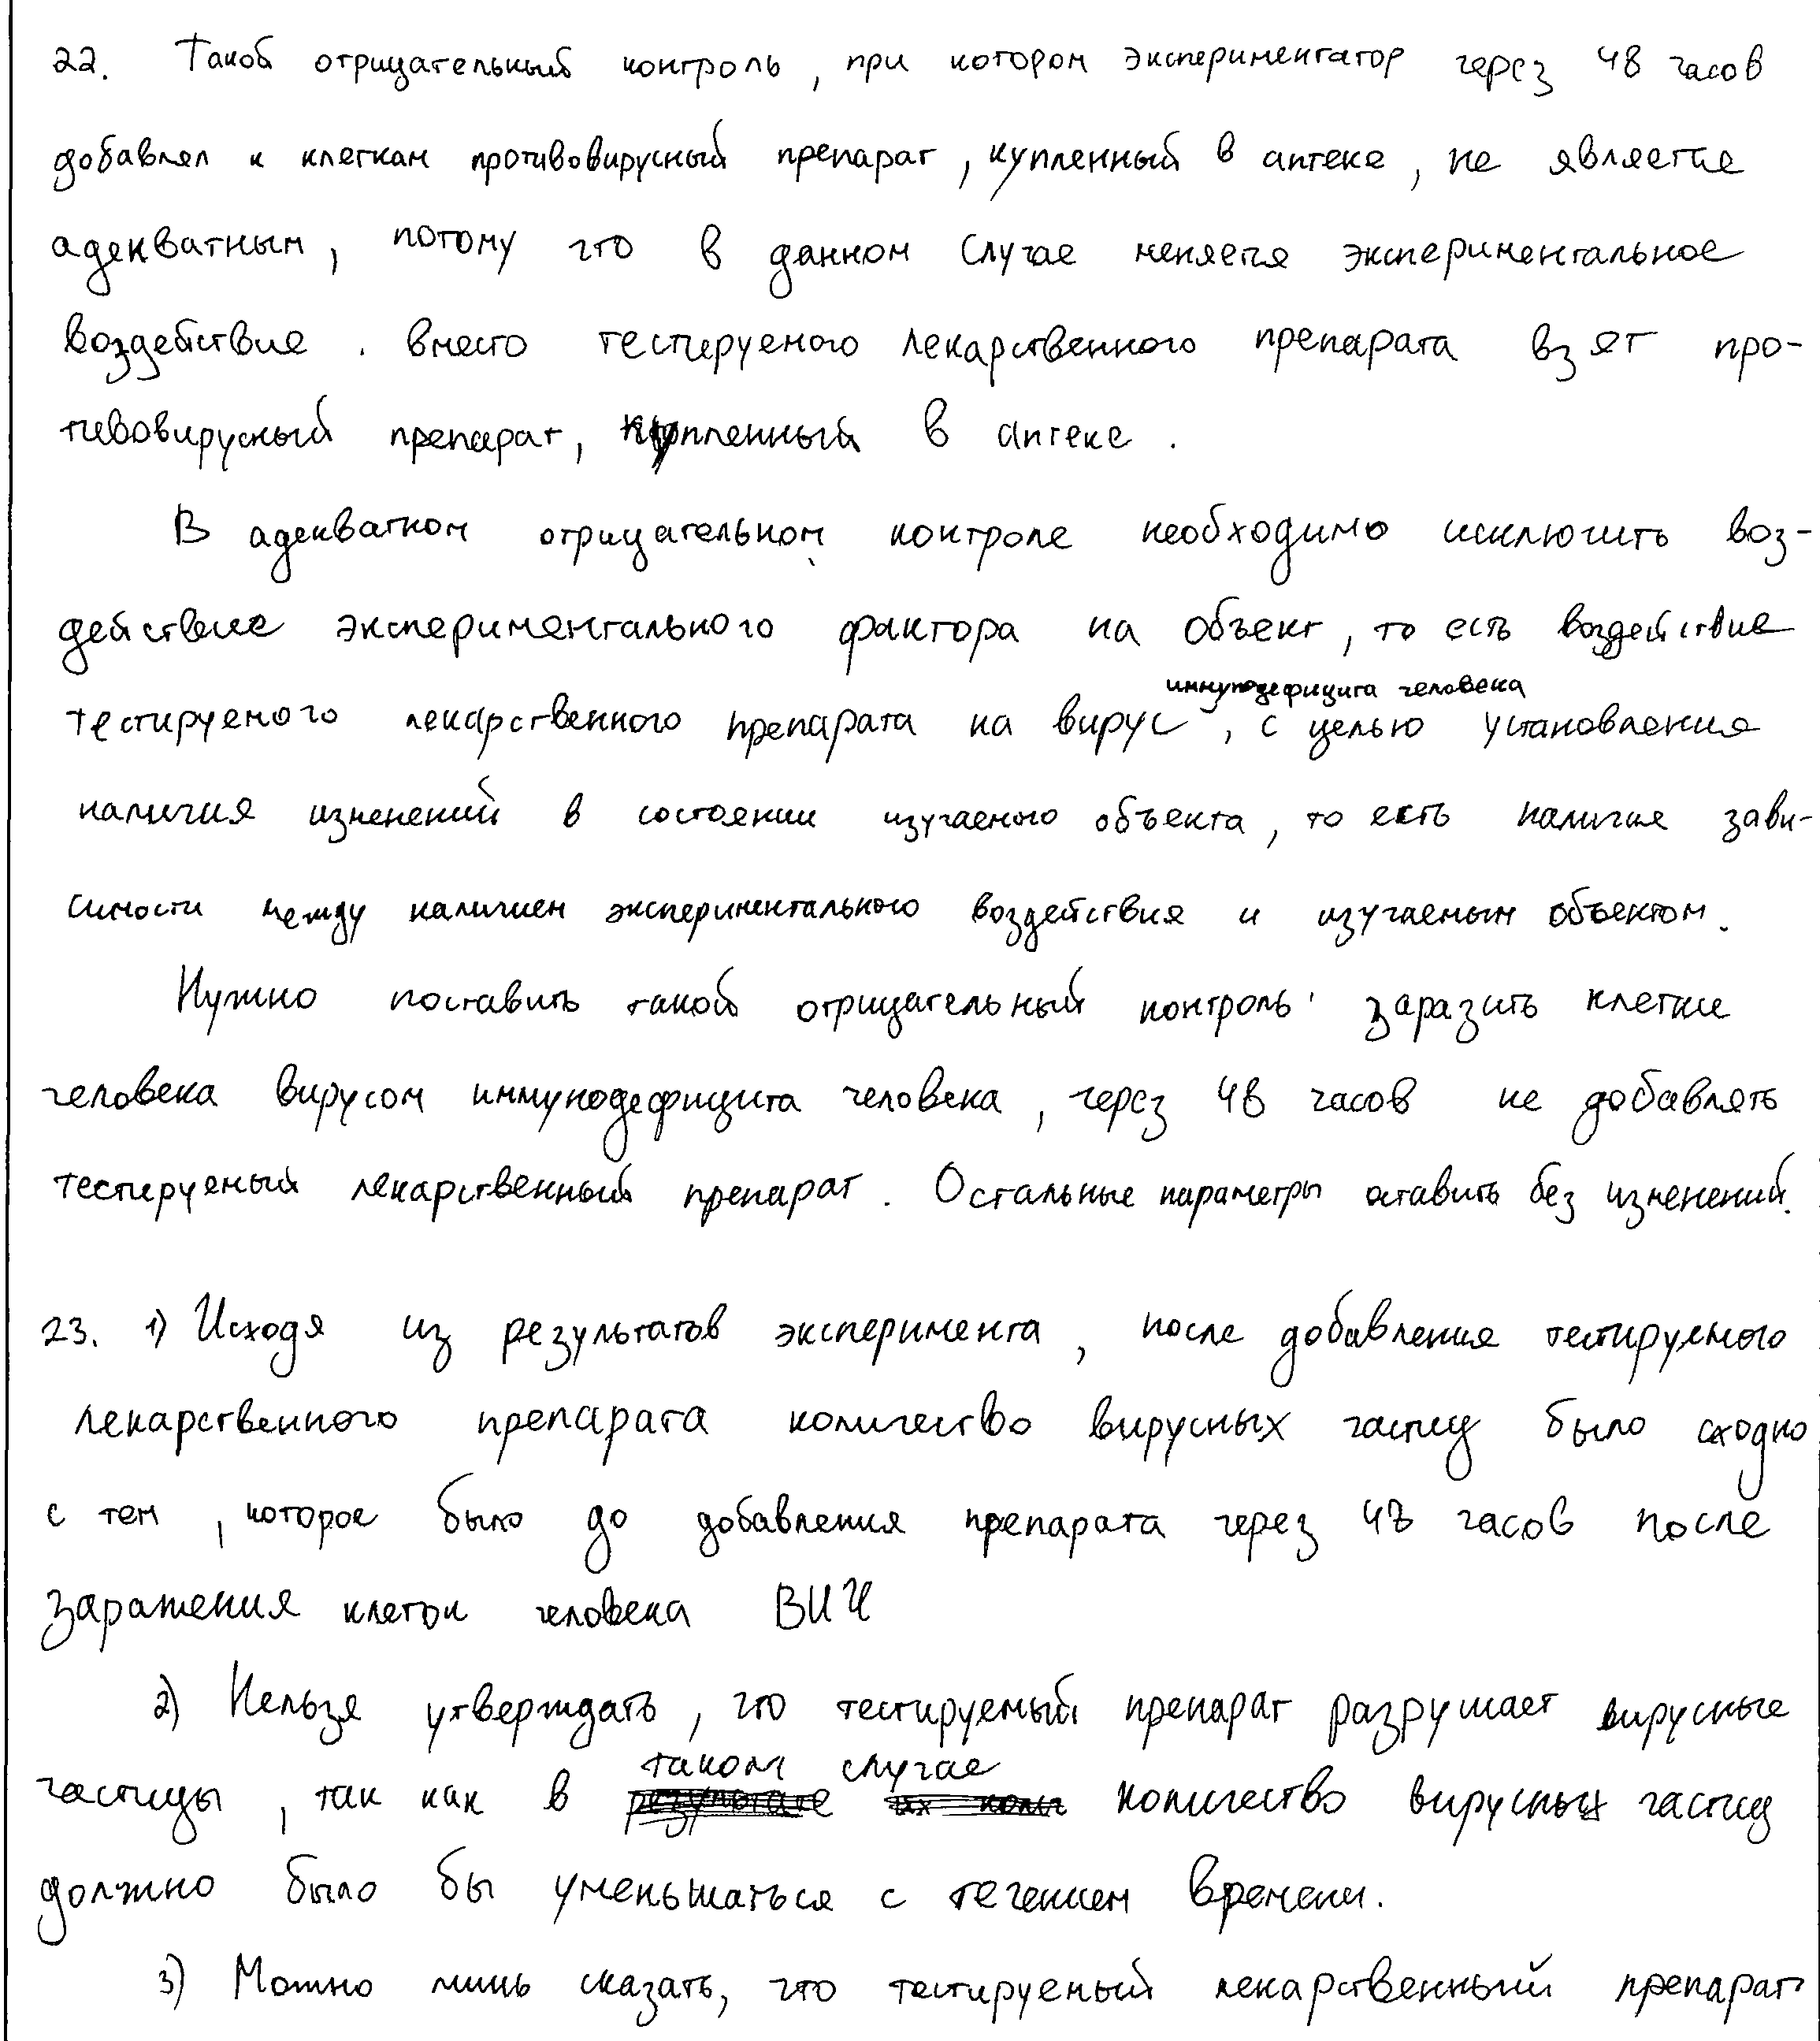 22. Такой отрицательный контроль, при котором экспериментатор через 48 часов
добавлял к клеткам противовирусный препарат, купленный в аптеке, не является
адекватным, потому что в данном случае меняется экспериментальное
воздействие. вместо тестируемого лекарственного препарата взят про-
тивовирусный препарат, купленный в аптеке.
В адекватном отрицательном контроле необходимо исключить воз-
действие экспериментального фактора на объект, то есть воздействие
иммунодефицита человека
тестируемого лекарственного препарата на вирус, с целью установления
наличия изменений в состоянии изучаемого объекта, то есть наличия зави-
симости между наличием экспериментального воздействия и изучаемым объектом.
Нужно поставить такой отрицательный контроль: заразить клетки
человека вирусом иммунодефицита человека, через 48 часов не добавлять
тестируемый лекарственный препарат. Остальные параметры оставить без изменений.
23. 1) Исходя из результатов эксперимента, после добавления тестируемого
лекарственного препарата количество вирусных частиц было сходно
с тем, которое было до добавления препарата через 48 часов после
заражения клеток человека ВИЧ
2) Нельзя утверждать, что тестируемый препарат разрушает вирусные
таком случае
частицы, так как в количество вирусных частиц
должно было бы уменьшаться с течением времени.
3) Можно лишь сказать, что тестируемый лекарственный препарат